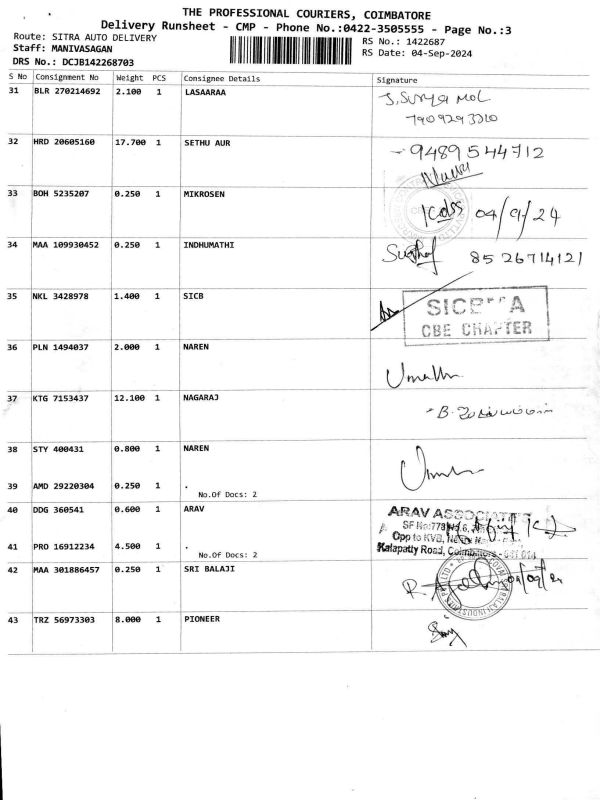 THE PROFESSIONAL COURIERS, COIMBATORE
Delivery Runsheet - CMP - Phone No.:0422-3505555 - Page No.:3
Route: SITRA AUTO DELIVERY
RS No.: 1422687
Staff: MANIVASAGAN
RS Date: 04-Sep-2024
DRS No.: DCJB142268703
S No Consignment No Weight PCS Consignee Details Signature
31 BLR 270214692 2.100 1 LASAARAA
7909293310
32 HRD 20605160 17.700 1 SETHU AUR
9489544712
33 BOH 5235207 0.250 1 MIKROSEN
04/9/24
34 MAA 109930452 0.250 1 INDHUMATHI
8526714121
35 NKL 3428978 1.400 1 SICB
CBE CHAPTER
36 PLN 1494037 2.000 1 NAREN
37 KTG 7153437 12.100 1 NAGARAJ
38 STY 400431 0.800 1 NAREN
39 AMD 29220304 0.250 1 .
No.Of Docs: 2
40 DDG 360541 0.600 1 ARAV
ARAV
SF No:
Opp to KVB,
41 PRO 16912234 4.500 1 .
No.Of Docs: 2
Kalapatty Road, Coimbatore
42 MAA 301886457 0.250 1 SRI BALAJI
43 TRZ 56973303 8.000 1 PIONEER